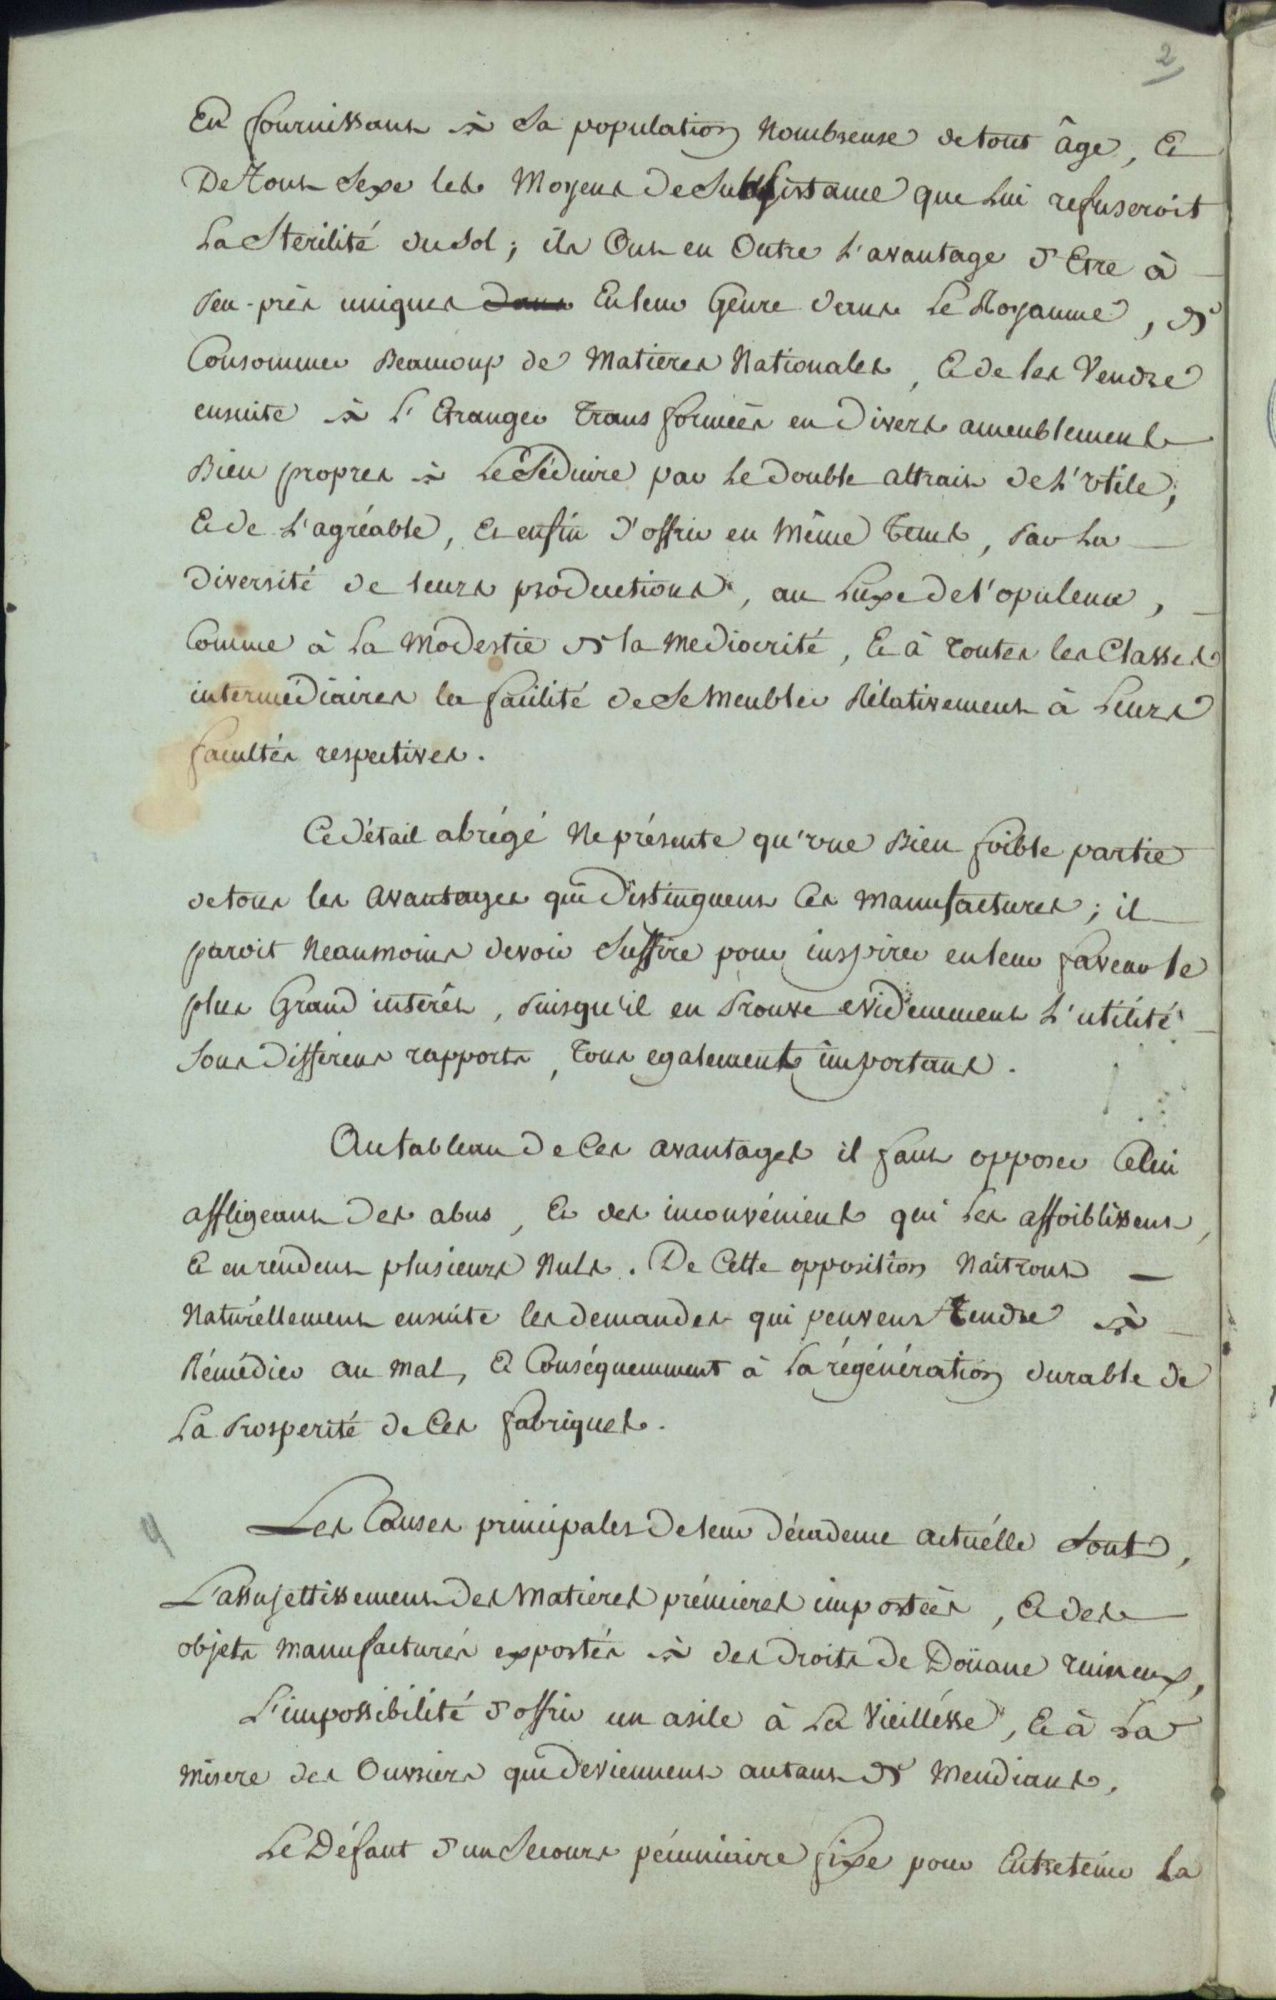 2
En fournissant à sa population Nombreuse de tout âge, Et
De Tout Sexe les Moyens de Subsistance que Lui refuseroit
La Sterilité du Sol; ils Ont en Outre L'avantage d'Etre à
Peu-près uniques dans En leur Genre dans Le Royaume, de
Consommer Beaucoup de Matieres Nationales, Et de les Vendre
ensuite à L'Etranger Transformées en Divers ameublements
Bien propres à Le Séduire par Le Double attrait de L'Utile,
Et de L'agréable, Et enfin d'offrir en Même Tems, Par La
Diversité de leurs productions, au Luxe de l'opulence,
Comme à La Modestie de la Mediocrité, Et à Toutes les Classes
intermédiaires la facilité de Se Meubler Rélativement à Leurs
facultés respectives.
Ce Détail abrégé Ne présente qu'une Bien foible partie
de tous les avantages qui Distinguent Ces Manufactures; il
paroit Neanmoins devoir Suffire pour inspirer en leur faveur le
plus Grand intérêt, Puisqu'il en Prouve evidemment L'utilité
Sous Differens rapports, Tous egalement importans.
Au tableau De Ces avantages il faut opposer Celui
affligeant Des abus, Et des inconvéniens qui Les affoiblissent,
Et en rendent plusieurs Nuls. De Cette opposition Naitront
Naturéllement ensuite les demandes qui peuvent Tendre à
Rémédier au Mal, Et Conséquemment à La régénération durable de
La Prosperité de Ces fabriques.
Les Causes principales De leur Décadence actuélle Sont,
L'assujettissement des Matieres prémieres importées, Et des
objets Manufacturés exportés à des Droits de Doüane ruineux,
L'impossibilité d'offrir un asile à La Vieillésse, Et à La
Misere des Ouvriers qui Deviennent autant de Mendians,
Le Défaut d'un Secours pécuniaire fixe pour Entretenir La